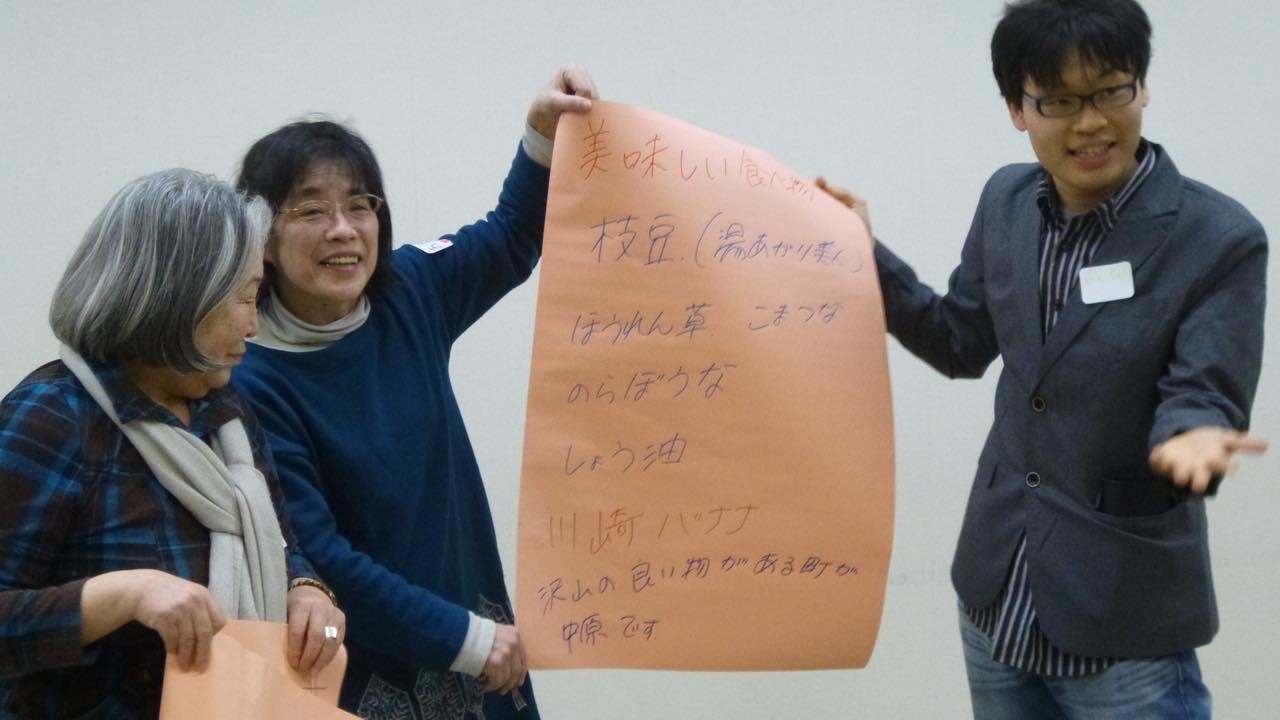 美味しい食べ物
枝豆.(湯あがり美人)
ほうれん草 こまつな
のらぼうな
しょう油
川崎バナナ
沢山の良い物がある町が
中原です